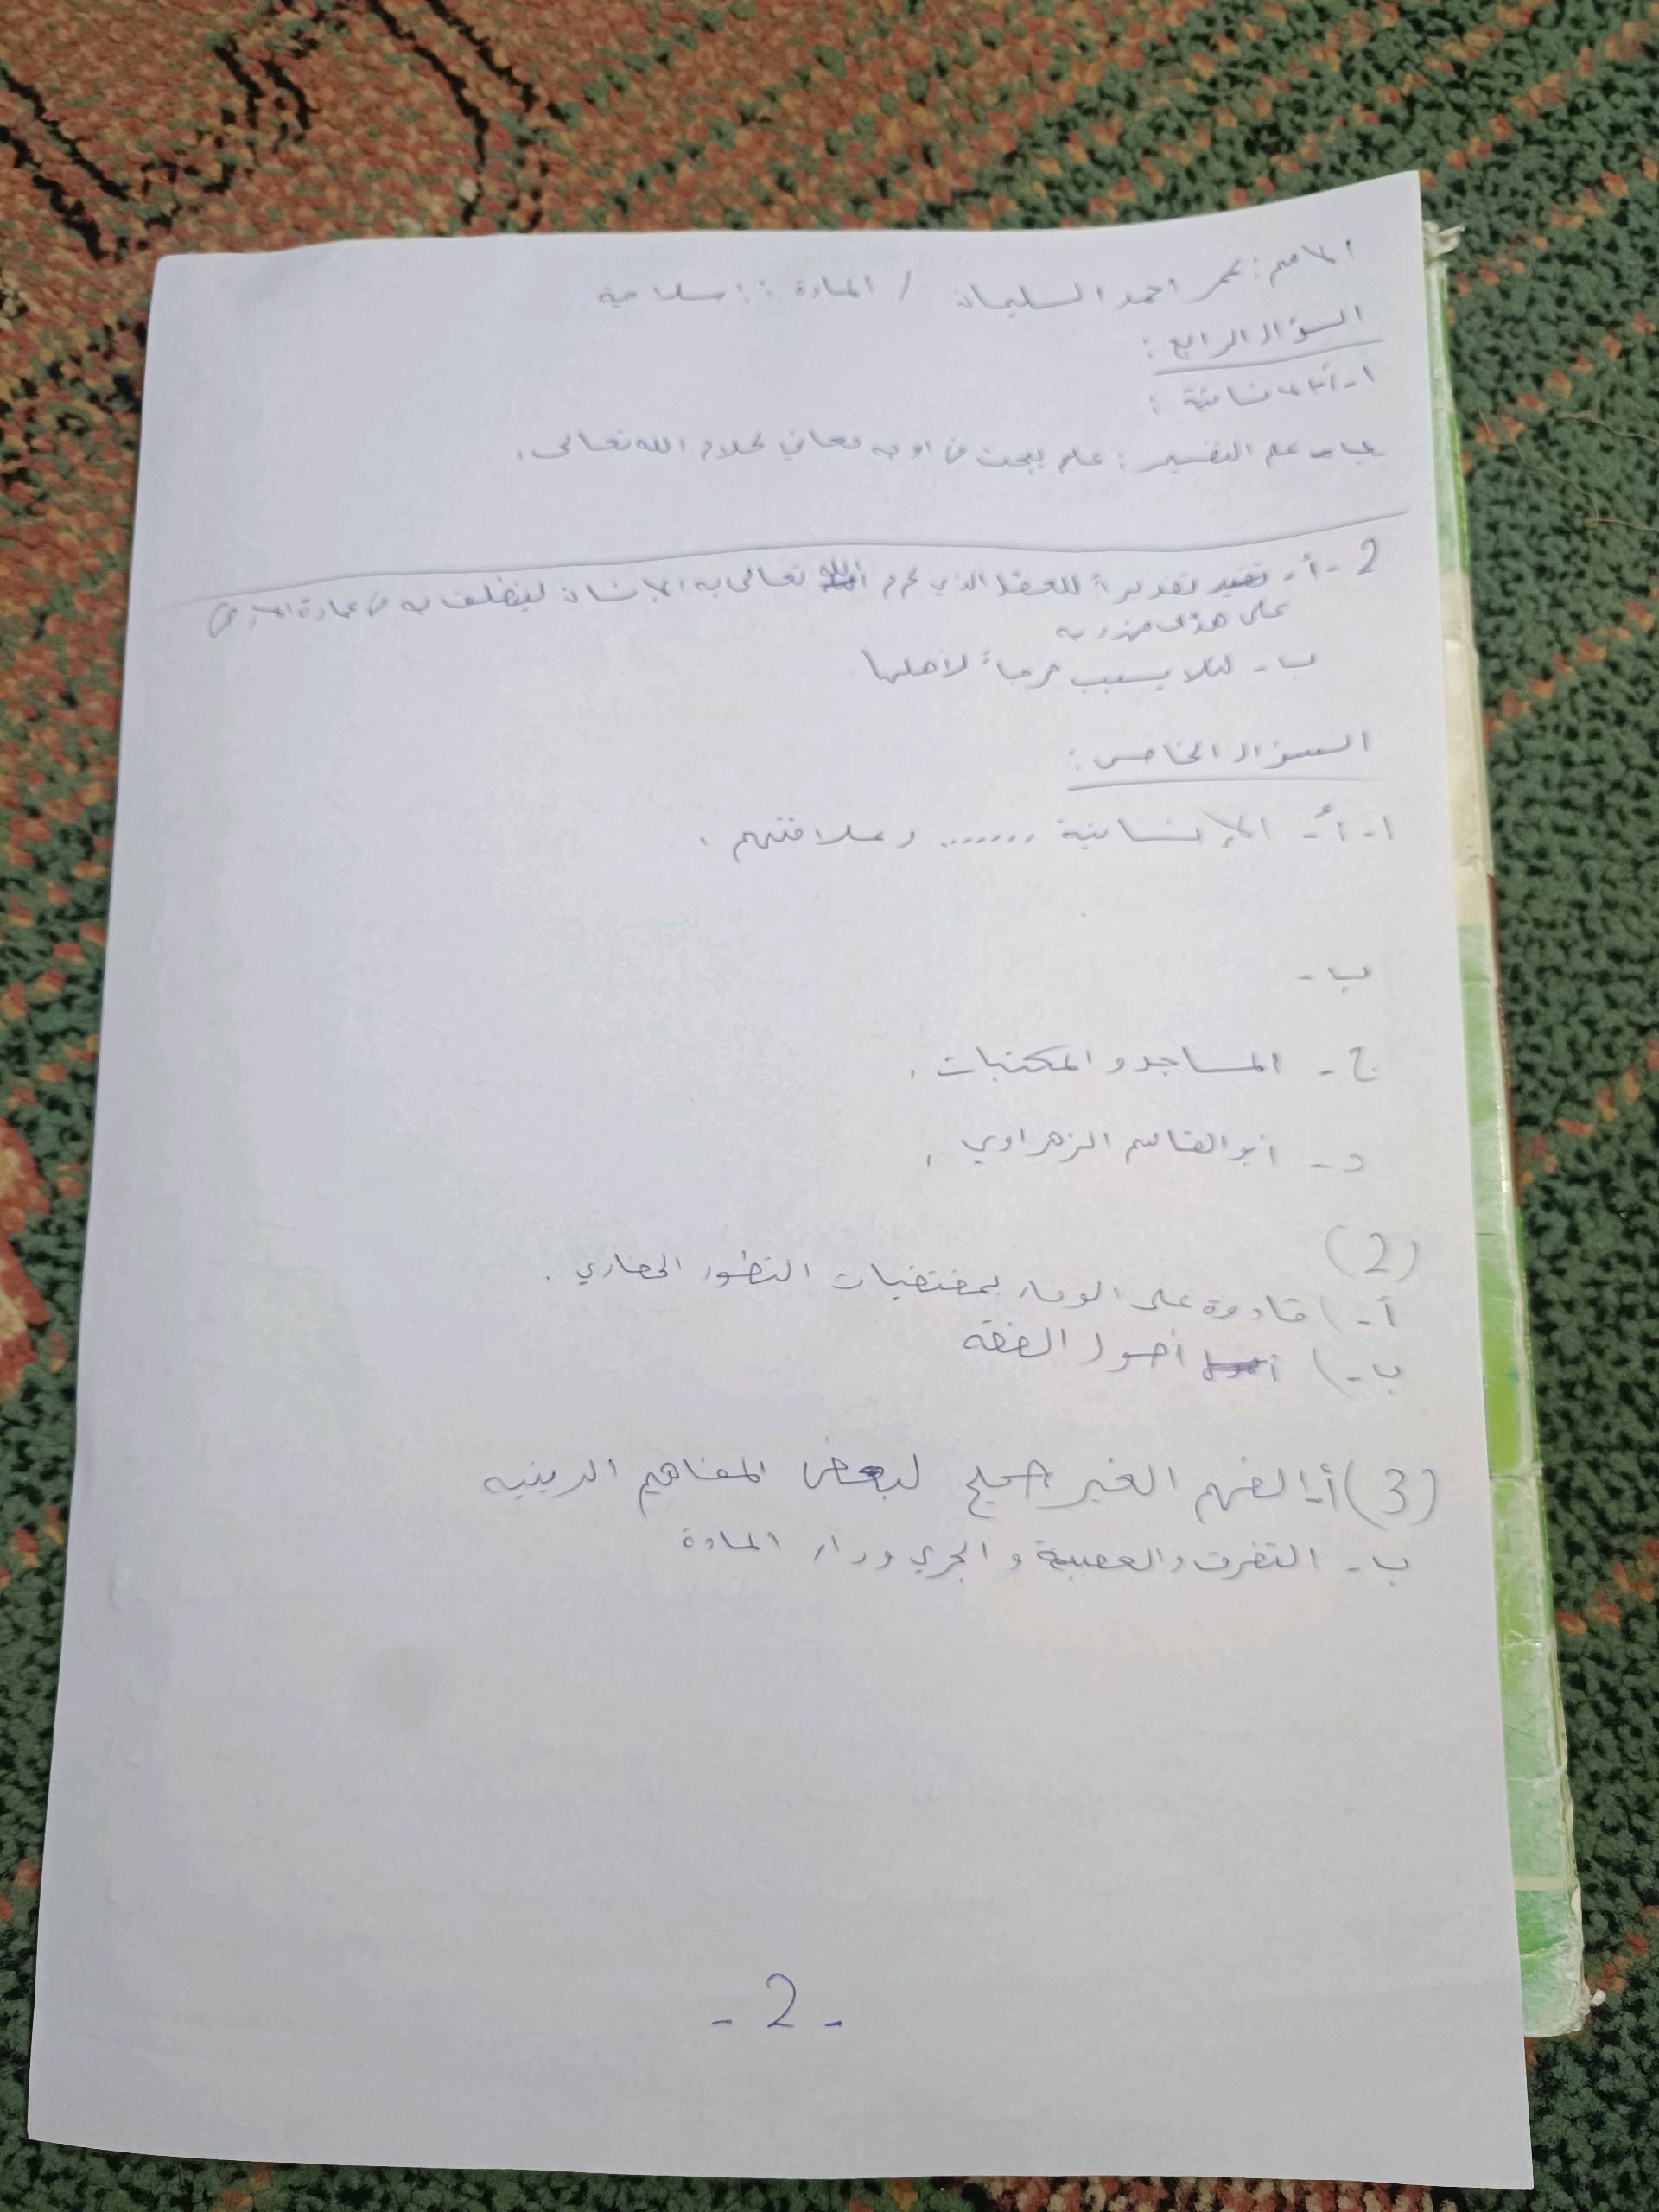 الاسم: عمر احمد السليمان / المادة: إسلامية
السؤال الرابع:
١-أ-الإنسانية:
ب- علم التفسير: علم يبحث في اوجه معاني كلام الله تعالى.
2-أ- تقديراً للعقل الذي كرم الله تعالى به الإنسان لينطلق به في عمارة الارض
على هدى من ربه
ب- لئلا يسبب حرجاً لأهلها
السؤال الخامس:
١-أ- الإنسانية ....... وعلاقتهم.
ب-
ج- المساجد و المكتبات.
د- أبو القاسم الزهراوي.
(2)
أ-) قادرة على الوفاء بمقتضيات التطور الحضاري.
ب-) أصول الفقه
(3) أ-الفهم الغير صحيح لبعض المفاهيم الدينيه
ب- التفرق والعصبية و الجري وراء المادة
- 2 -